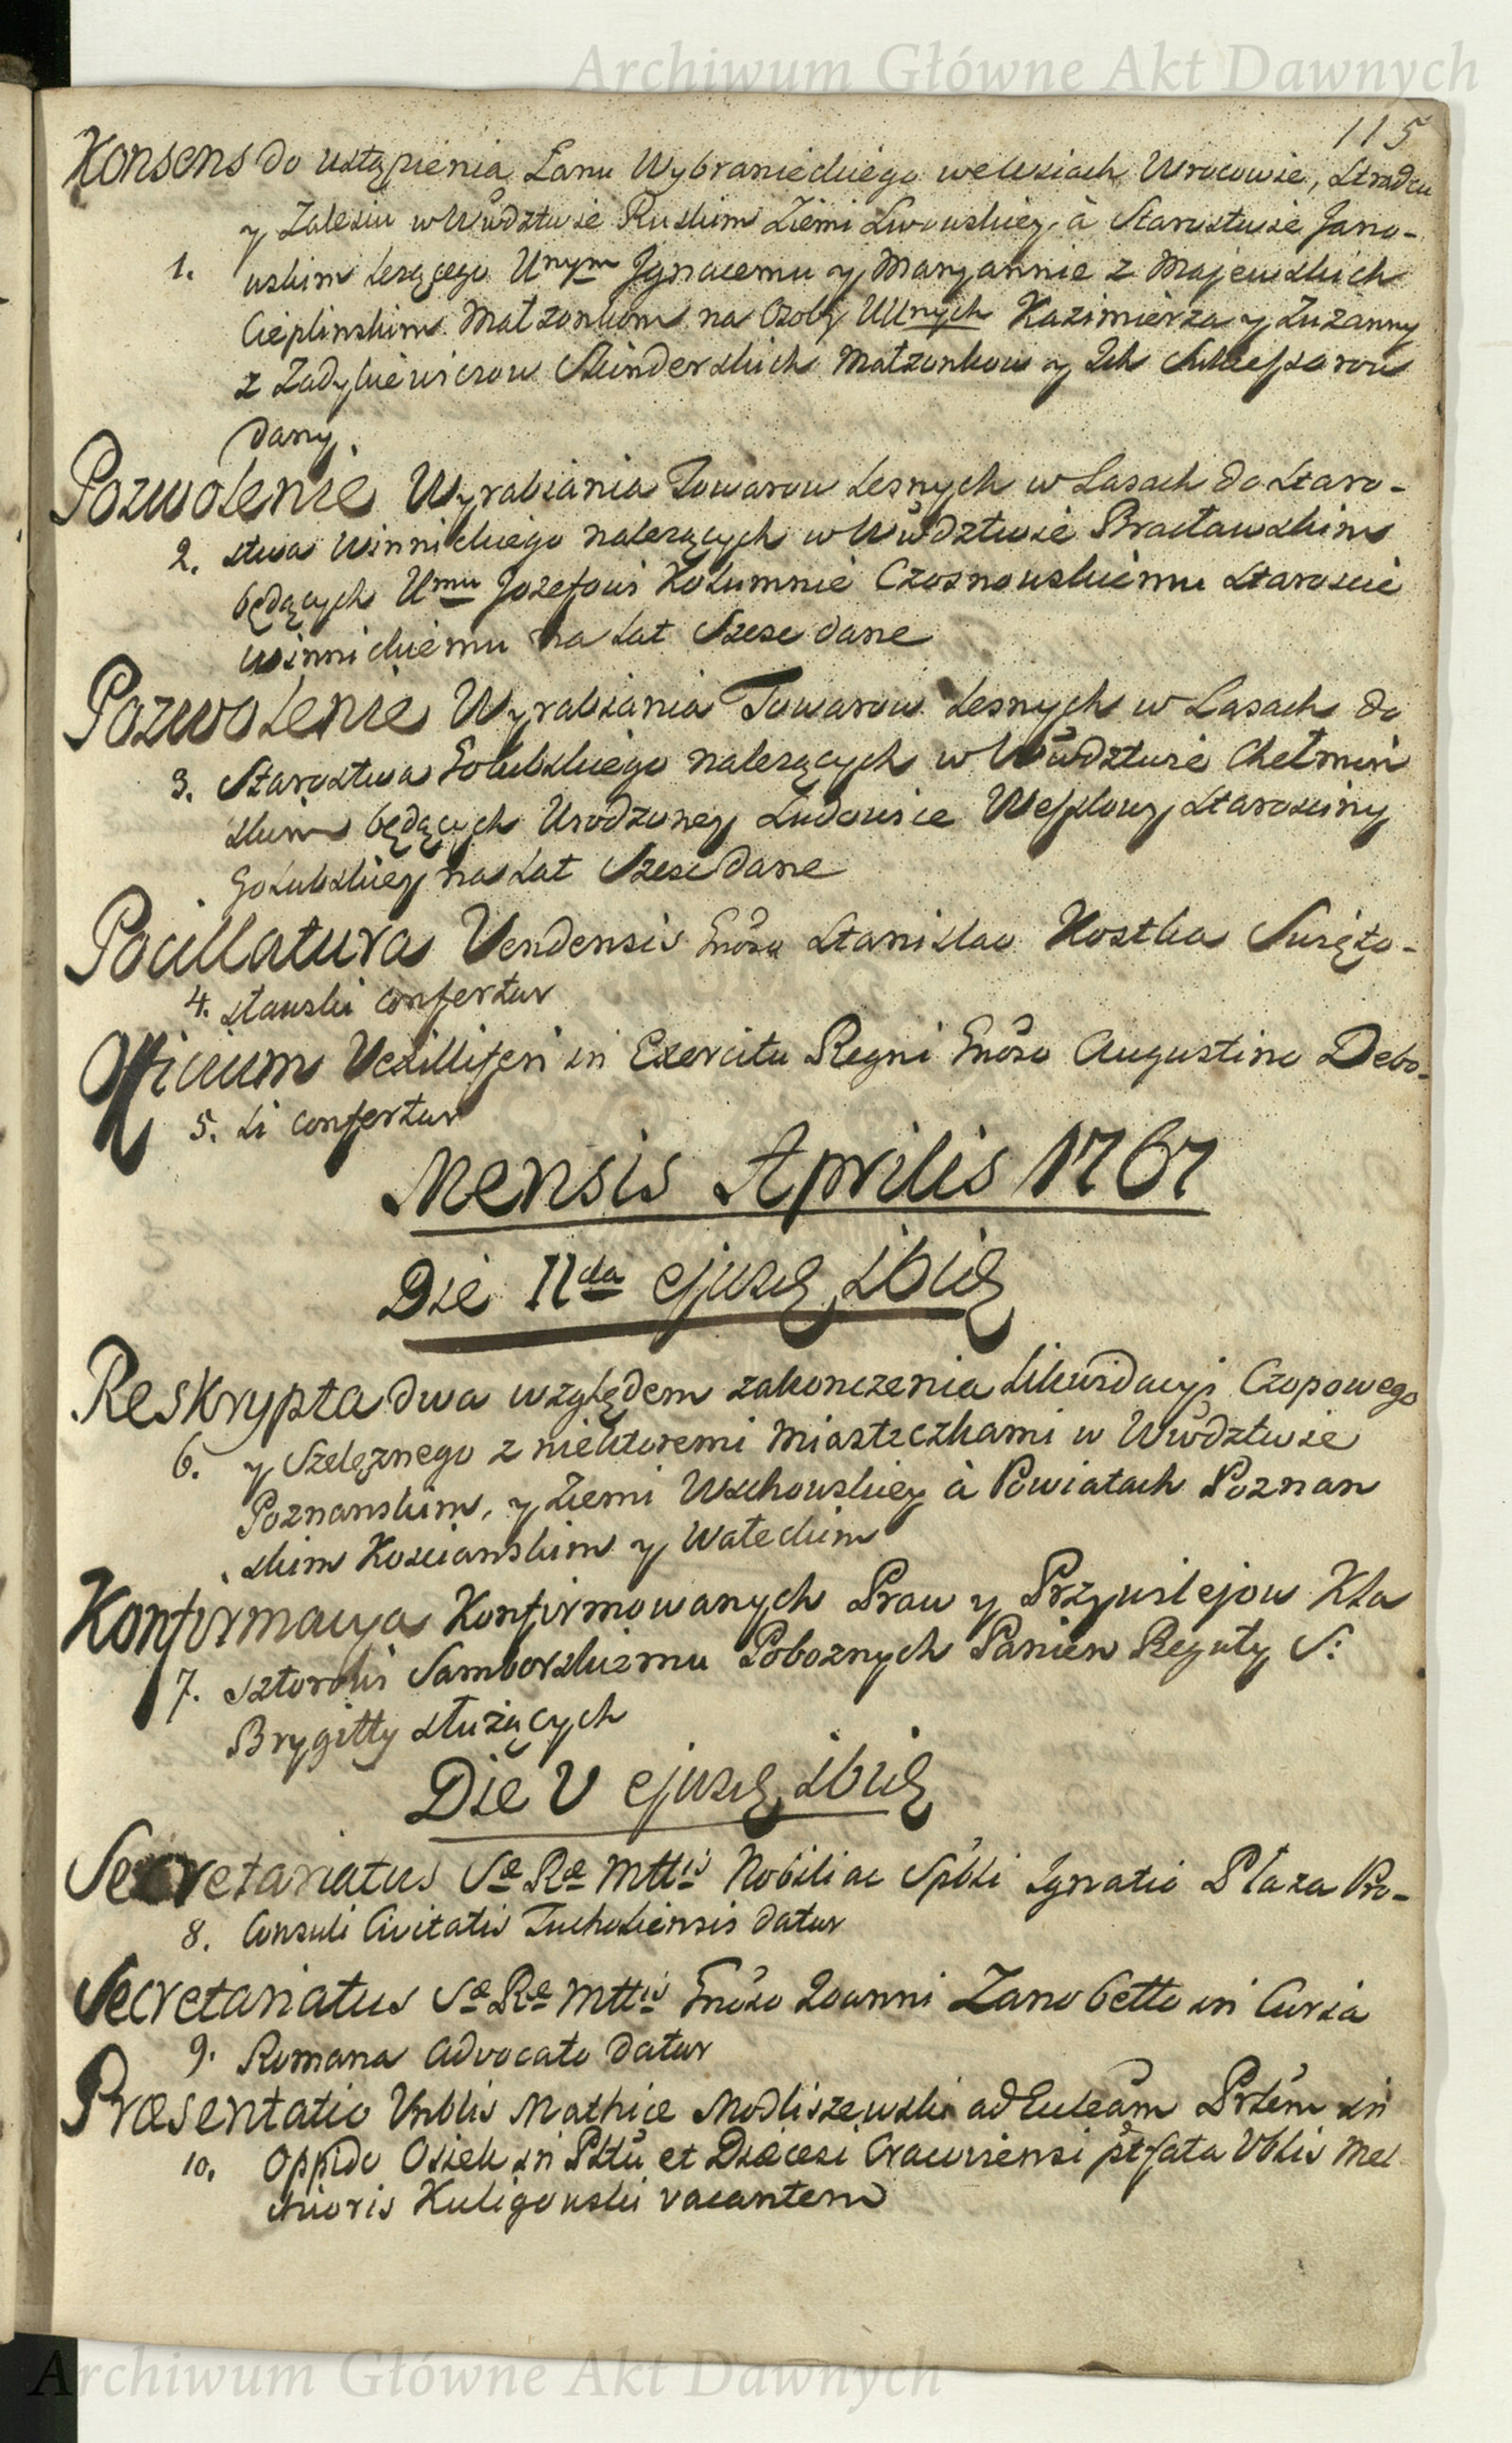 Archiwum Główne Akt Dawnych
115
Konsens do ustąpienia Łanu Wybranieckiego we Wsiach Wrocowie, Stradczu
y Zalesiu w Wwdztwie Ruskim Ziemi Lwowskiey, à Starostwie Jano-
1. wskim lezącego Urnym Jgnacemu y Maryannie z Majewskich
Cieplinskim Małzonkom na Osoby UUrnych Kazimierza y Zuzanny
z Zadykiewiczow Skinderskich Małzonkow y Ich Sukcessorow
dany.
Pozwolenie Wyrabiania Towarow Lesnych w Lasach do Staro-
2. stwa Winnickiego nalezących w Wwdztwie Bracławskim
będących Urmu Jozefowi Kolumnie Czosnowskiemu Staroscie
Winnickiemu na Lat Szesc dane
Pozwolenie Wyrabiania Towarow Lesnych w Lasach do
3. Starostwa Golubskiego nalezących w Wwdztwie Chełmin
skim będących Urodzoney Ludowice Wesslowy Starosciny
Golubskiey na Lat Szesc dane
Pocillatura Vendensis Gnoso Stanislao Kostka Swięto-
4. sławski confertur
Officium Vexilliferi in Exercitu Regni Gnoso Augustino Debo-
5. li confertur
Mensis Aprilis 1767
Die IIda ejusd ibid
Reskrypta dwa względem zakonczenia Likwidacyi Czopowego
6. y Szelęznego z niektoremi Miasteczkami w Wwdztwie
Poznanskim, y Ziemi Wschowskiey à Powiatach Poznan
skim Koscianskim y Wałeckim
Konfirmacya Konfirmowanych Praw y Przywilejow Kla
7. sztorowi Samborskiemu Poboznych Panien Reguły S:
Brygitty słuzących
Die V ejusd ibid
Secretariatus Sæ Ræ Mttis Nobili ac Spbli Ignatio Plaza Pro-
8. Consuli Civitatis Tucholiensis datur
Secretariatus Sæ Ræ Mttis Gnoso Joanni Zanobetto in Curia
9. Romana Advocato datur
Præsentatio Vnblis Mathiæ Modliszewski ad Eccleam Prlem in
10. Oppido Osiek in Pltu et Diæcesi Cracoviensi pt fata Vblis Mel
chioris Kuligowski vacantem
Archiwum Główne Akt Dawnych